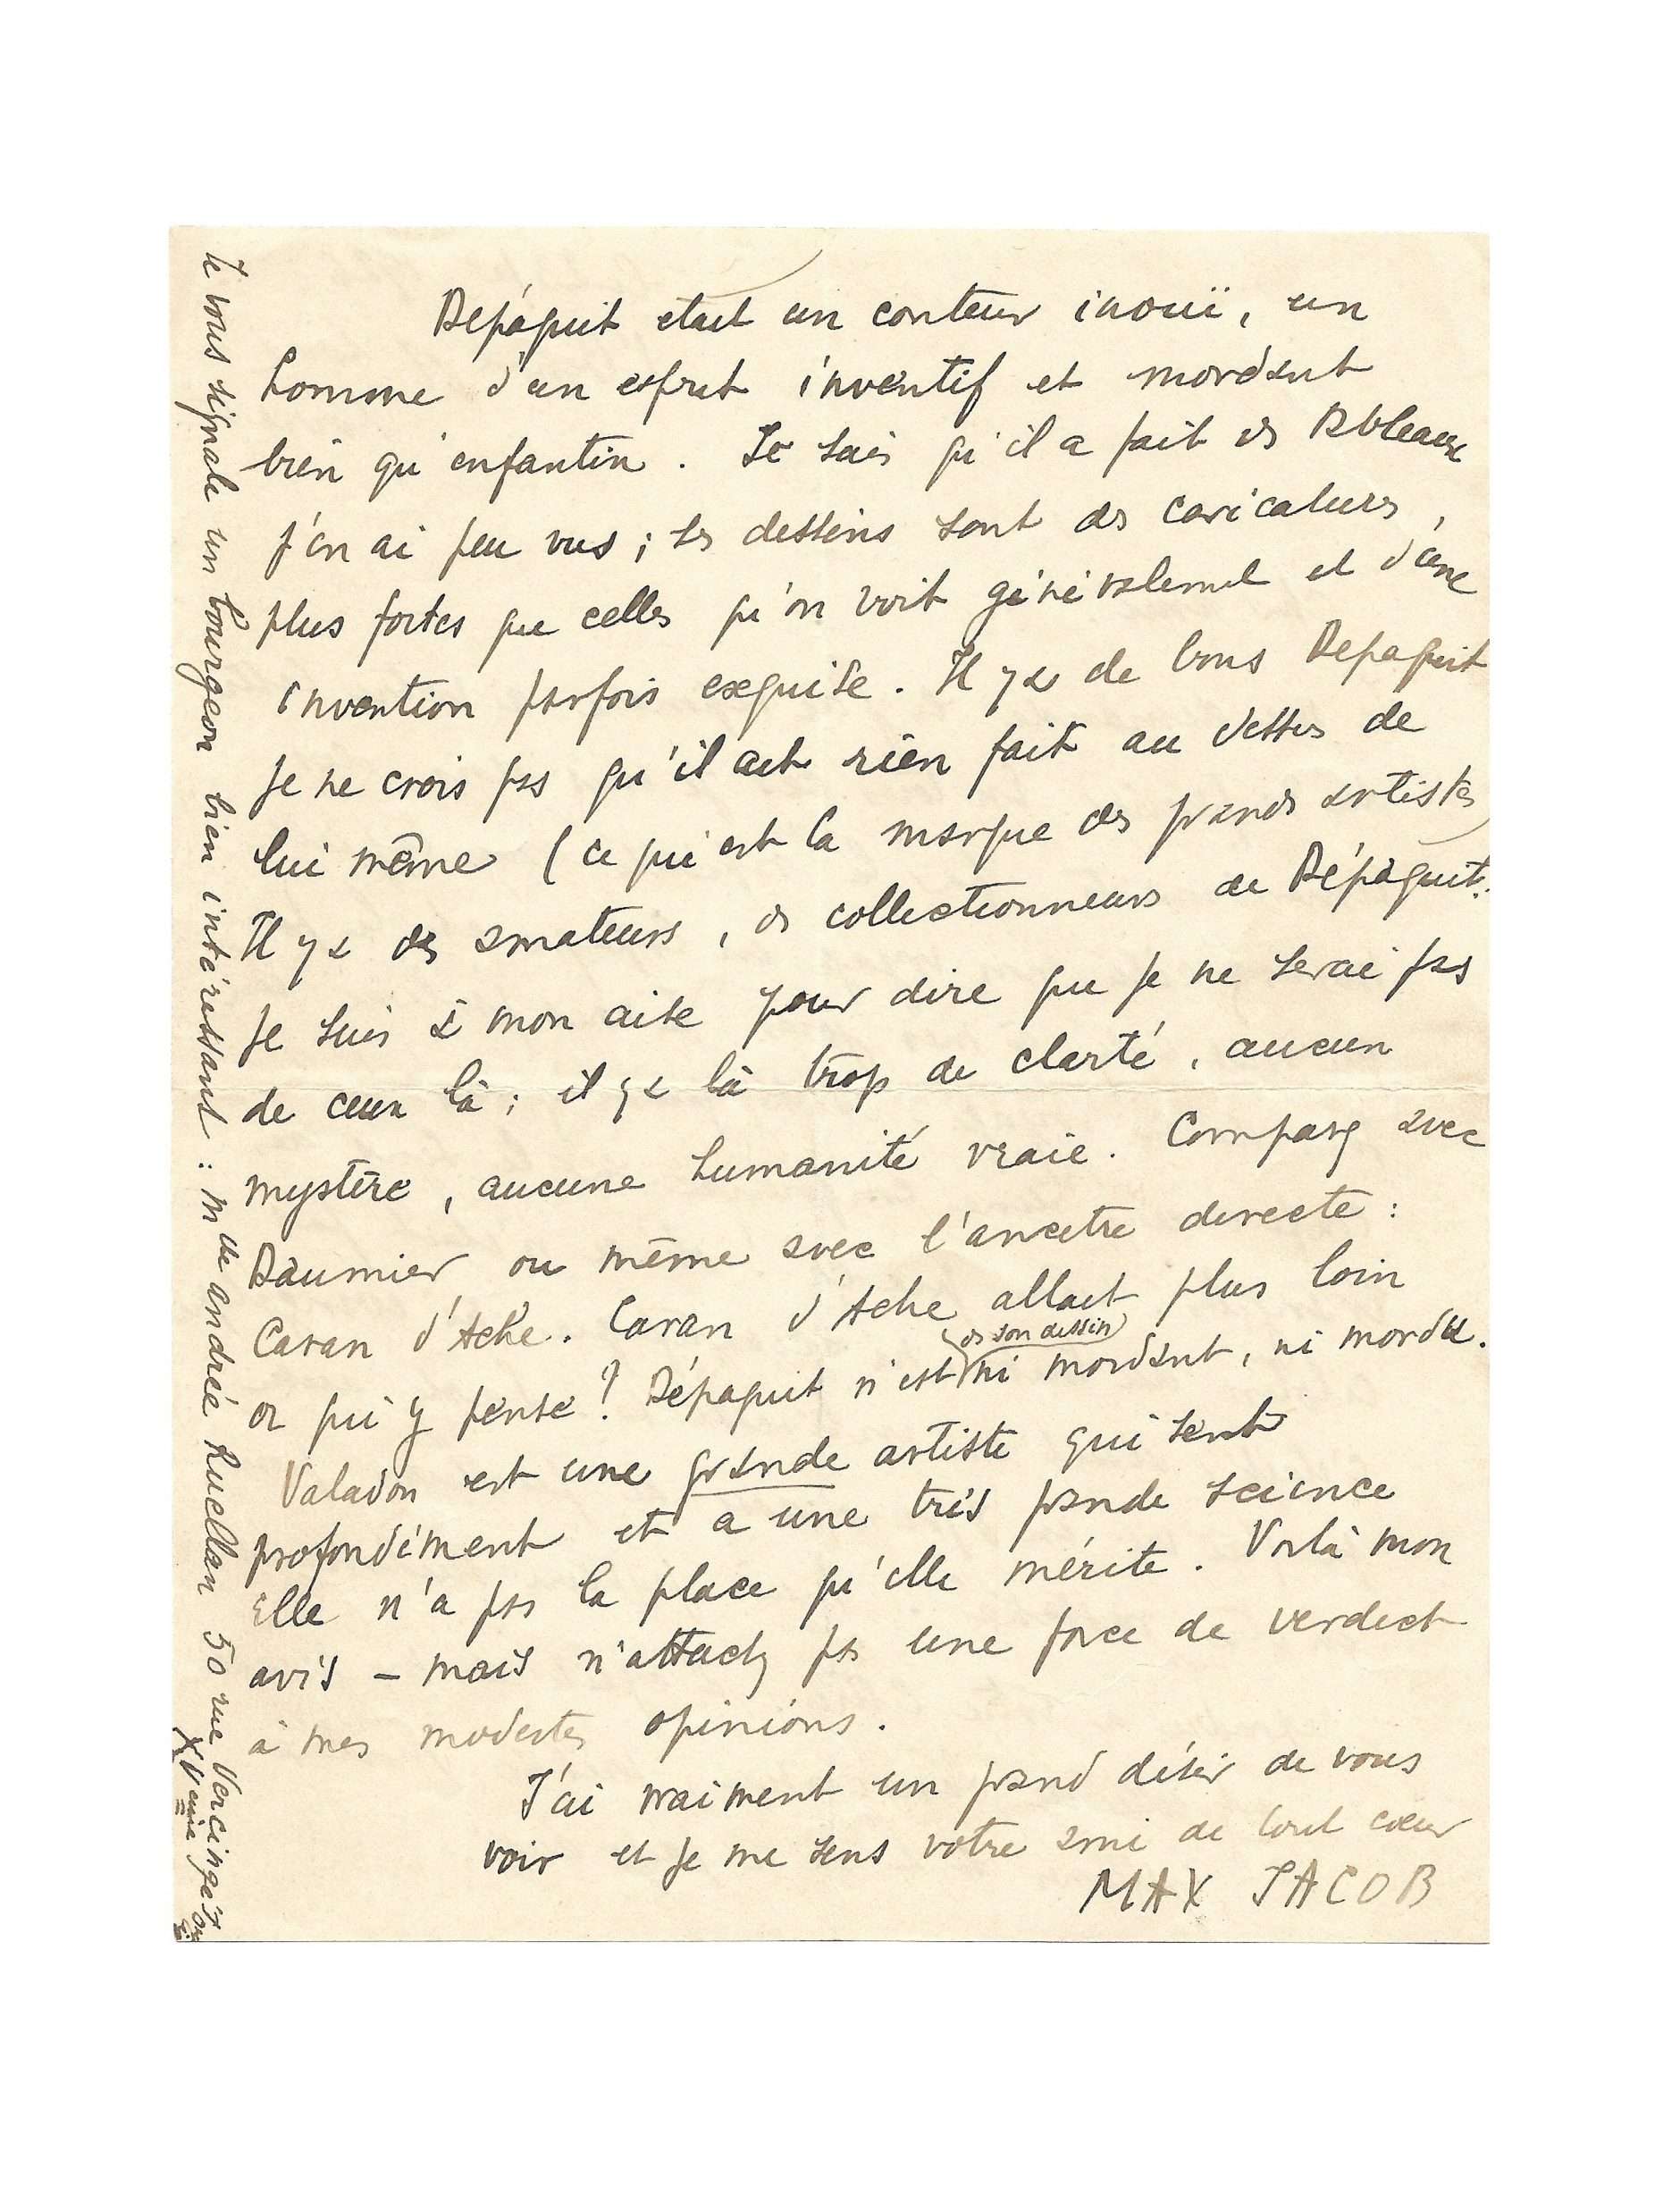 Dépaquit etait un conteur inouï, un
homme d'un esprit inventif et mordant
bien qu'enfantin. Je sais qu'il a fait des tableaux
j'en ai peu vus ; ses dessins sont des caricatures,
plus fortes que celles qu'on voit généralement et d'une
invention parfois exquise. Il y a de bons Depaquit
je ne crois pas qu'il ait rien fait au dessus de
lui même (ce qui est la marque des grands artistes)
Il y a des amateurs, des collectionneurs de Dépaquit.
Je suis à mon aise pour dire que je ne serai pas
de ceux là ; il y a là trop de clarté, aucun
mystère, aucune humanité vraie. Comparez avec
Daumier ou même avec l'ancetre directe :
Caran d'Ache. Caran d'Ache allait plus loin
ds son dessin
or qui y pense ? Dépaquit n'est ni mordant, ni mordu.
Valadon est une grande artiste qui sent
profondément et a une très grande science
Elle n'a pas la place qu'elle mérite. Voilà mon
avis – mais n'attachez pas une force de verdict
à mes modestes opinions.
J'ai vraiment un grand désir de vous
voir et je me sens votre ami de tout cœur
MAX JACOB
Je vous signale un bourgeon bien intéressant : Mlle andrée Ruellan 50 rue Vercingétorix
XVeme